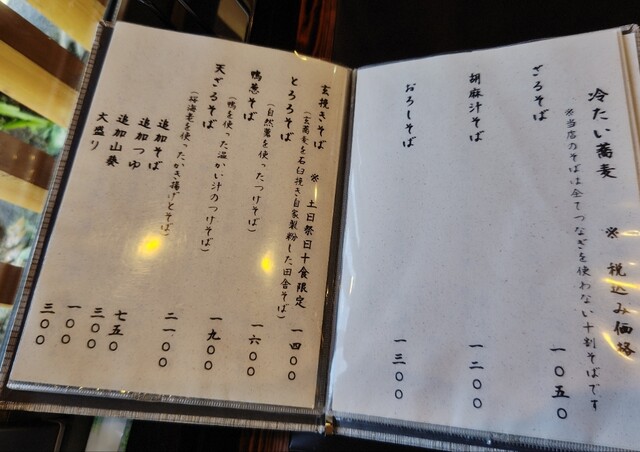 冷たい蕎麦　※　税込み価格
※当店のそばは全てつなぎを使わない十割そばです
ざるそば　一〇五〇
胡麻汁そば　一二〇〇
おろしそば　一三〇〇
玄挽きそば　※　土日祭日十食限定
(玄蕎麦を石臼挽き自家製粉した田舎そば)　一四〇〇
とろろそば
(自然薯を使ったつけそば)　一六〇〇
鴨葱そば
(鴨を使った温かい汁のつけそば)　一九〇〇
天ざるそば
(桜海老を使ったかき揚げとそば)　二一〇〇
追加そば　七五〇
追加つゆ　三〇〇
追加山葵　一〇〇
大盛り　三〇〇